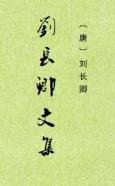 〔唐〕刘长卿
劉長卿文集